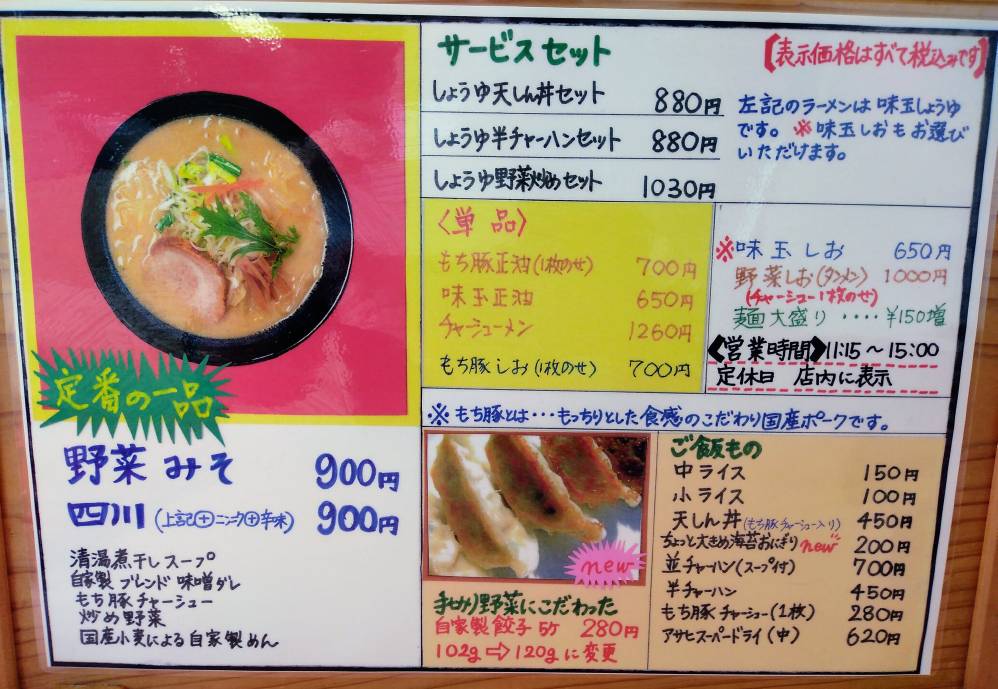 定番の一品
野菜みそ 900円
四川(上記⊕ニンニク⊕辛味) 900円
清湯煮干しスープ
自家製ブレンド味噌ダレ
もち豚チャーシュー
炒め野菜
国産小麦による自家製めん
サービスセット
【表示価格はすべて税込みです】
しょうゆ天しん丼セット 880円
しょうゆ半チャーハンセット 880円
しょうゆ野菜炒めセット 1030円
左記のラーメンは味玉しょうゆ
です。※味玉しおもお選び
いただけます。
〈単品〉
もち豚正油(1枚のせ) 700円
味玉正油 650円
チャーシューメン 1260円
もち豚しお(1枚のせ) 700円
※味玉しお 650円
野菜しお(タンメン) 1000円
(チャーシュー1枚のせ)
麺大盛り ‥‥ ¥150増
《営業時間》11:15～15:00
定休日 店内に表示
※もち豚とは・・・もっちりとした食感のこだわり国産ポークです。
new
手切り野菜にこだわった
自家製餃子5ケ 280円
102g⇨120gに変更
ご飯もの
中ライス 150円
小ライス 100円
天しん丼(もち豚チャーシュー入り) 450円
ちょっと大きめ海苔おにぎり new 200円
並チャーハン(スープ付) 700円
半チャーハン 450円
もち豚チャーシュー(1枚) 280円
アサヒスーパードライ(中) 620円